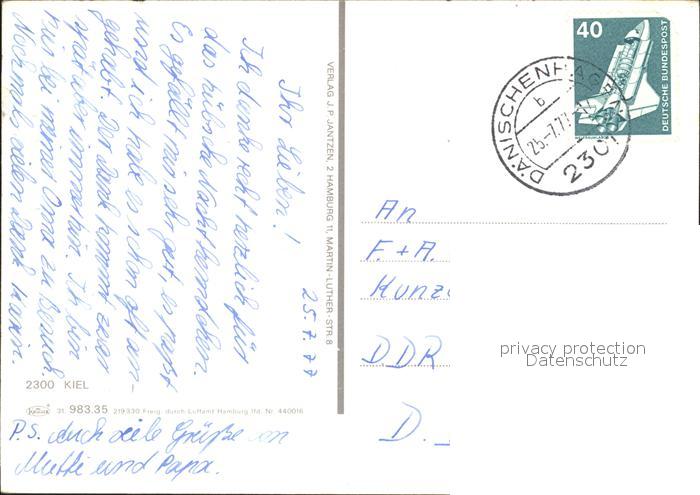 25.7.77
Ihr Lieben!
Ich danke recht herzlich für
das hübsche Nachthemdchen.
Es gefällt mir sehr gut, es passt
und ich habe es schon oft an-
gehabt. Der Dank kommt zwar
spät aber immerhin. Ich bin
hier bei meiner Oma zu Besuch.
Nochmals vielen Dank Karin.
P.S. Auch viele Grüße von
Mutti und Papa.
2300 KIEL
31. 983.35 219330 Freig. durch Luftamt Hamburg lfd. Nr. 440016
VERLAG J. P. JANTZEN, 2 HAMBURG 11, MARTIN-LUTHER-STR. 8
40
DEUTSCHE BUNDESPOST
DÄNISCHENHAGEN
b
25.-7.77
2301
An
F. + A.
Kunz
DDR
D.
privacy protection
Datenschutz